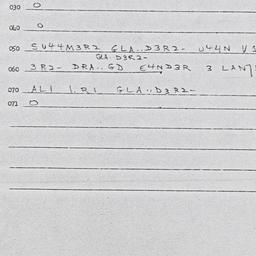 030 O
060 O
050 SU44M3R2 GLA..D3R2- U44N
GLA.D3R2-
060 3R2- DRA..GD E4ND3R 3 LANT
070 ALI 1.RI GLA..D3R2-
072 O